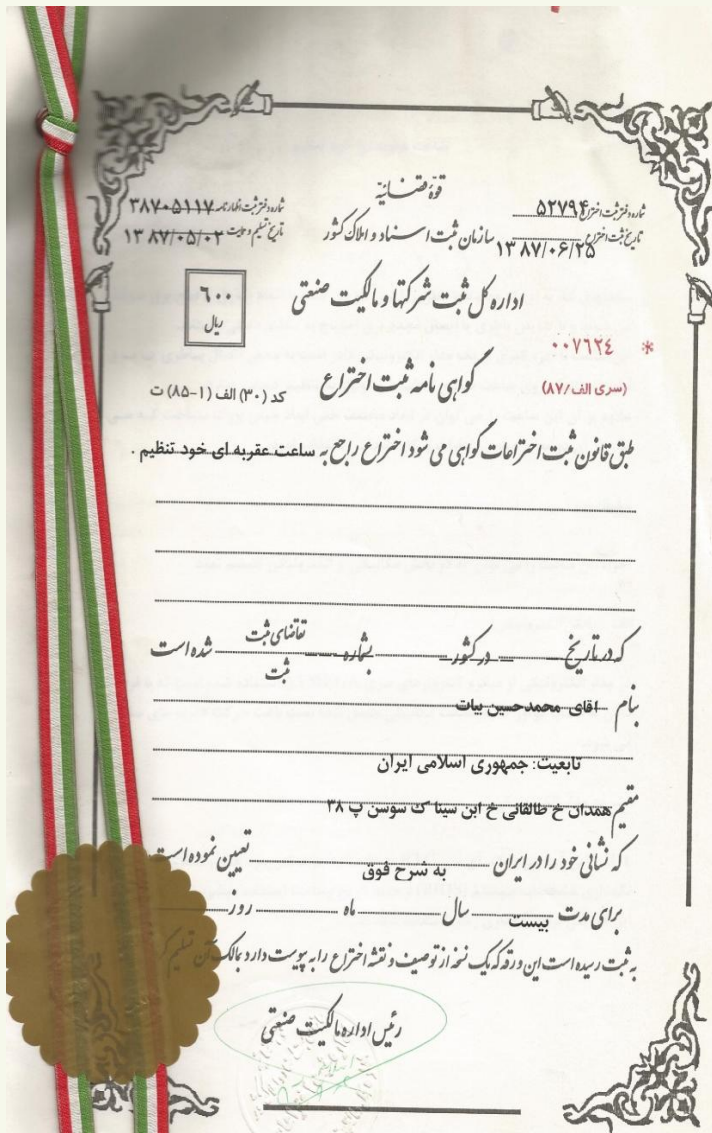 قوهٔ قضائیه
شماره دفتر ثبت اختراع ۵۲۷۹۴
تاریخ ثبت اختراع ۱۳۸۷/۰۶/۲۵
سازمان ثبت اسناد و املاک کشور
شماره دفتر ثبت اظهارنامه ۳۸۷۰۵۱۱۷
تاریخ تسلیم و جهت ۱۳۸۷/۰۵/۰۲
اداره کل ثبت شرکتها و مالکیت صنعتی
۶۰۰
ریال
* ۰۰۷۶۲۴
(سری الف/۸۷)
گواهی نامه ثبت اختراع
کد (۳۰) الف (۱-۸۵) ت
طبق قانون ثبت اختراعات گواهی می شود اختراع راجع به ساعت عقربه ای خود تنظیم .
که در تاریخ ــ در کشور ــ بشماره ــ تقاضای ثبت
ثبت شده است
بنام اقای محمدحسین بیات
تابعیت: جمهوری اسلامی ایران
مقیم همدان خ طالقانی خ ابن سینا ک سوسن پ ۳۸
که نشانی خود را در ایران به شرح فوق تعیین نموده است
برای مدت بیست سال ــ ماه ــ روز
به ثبت رسیده است این ورقه که یک نسخه از توصیف و نقشه اختراع را به پیوست دارد بمالک آن تسلیم
رئیس اداره مالکیت صنعتی